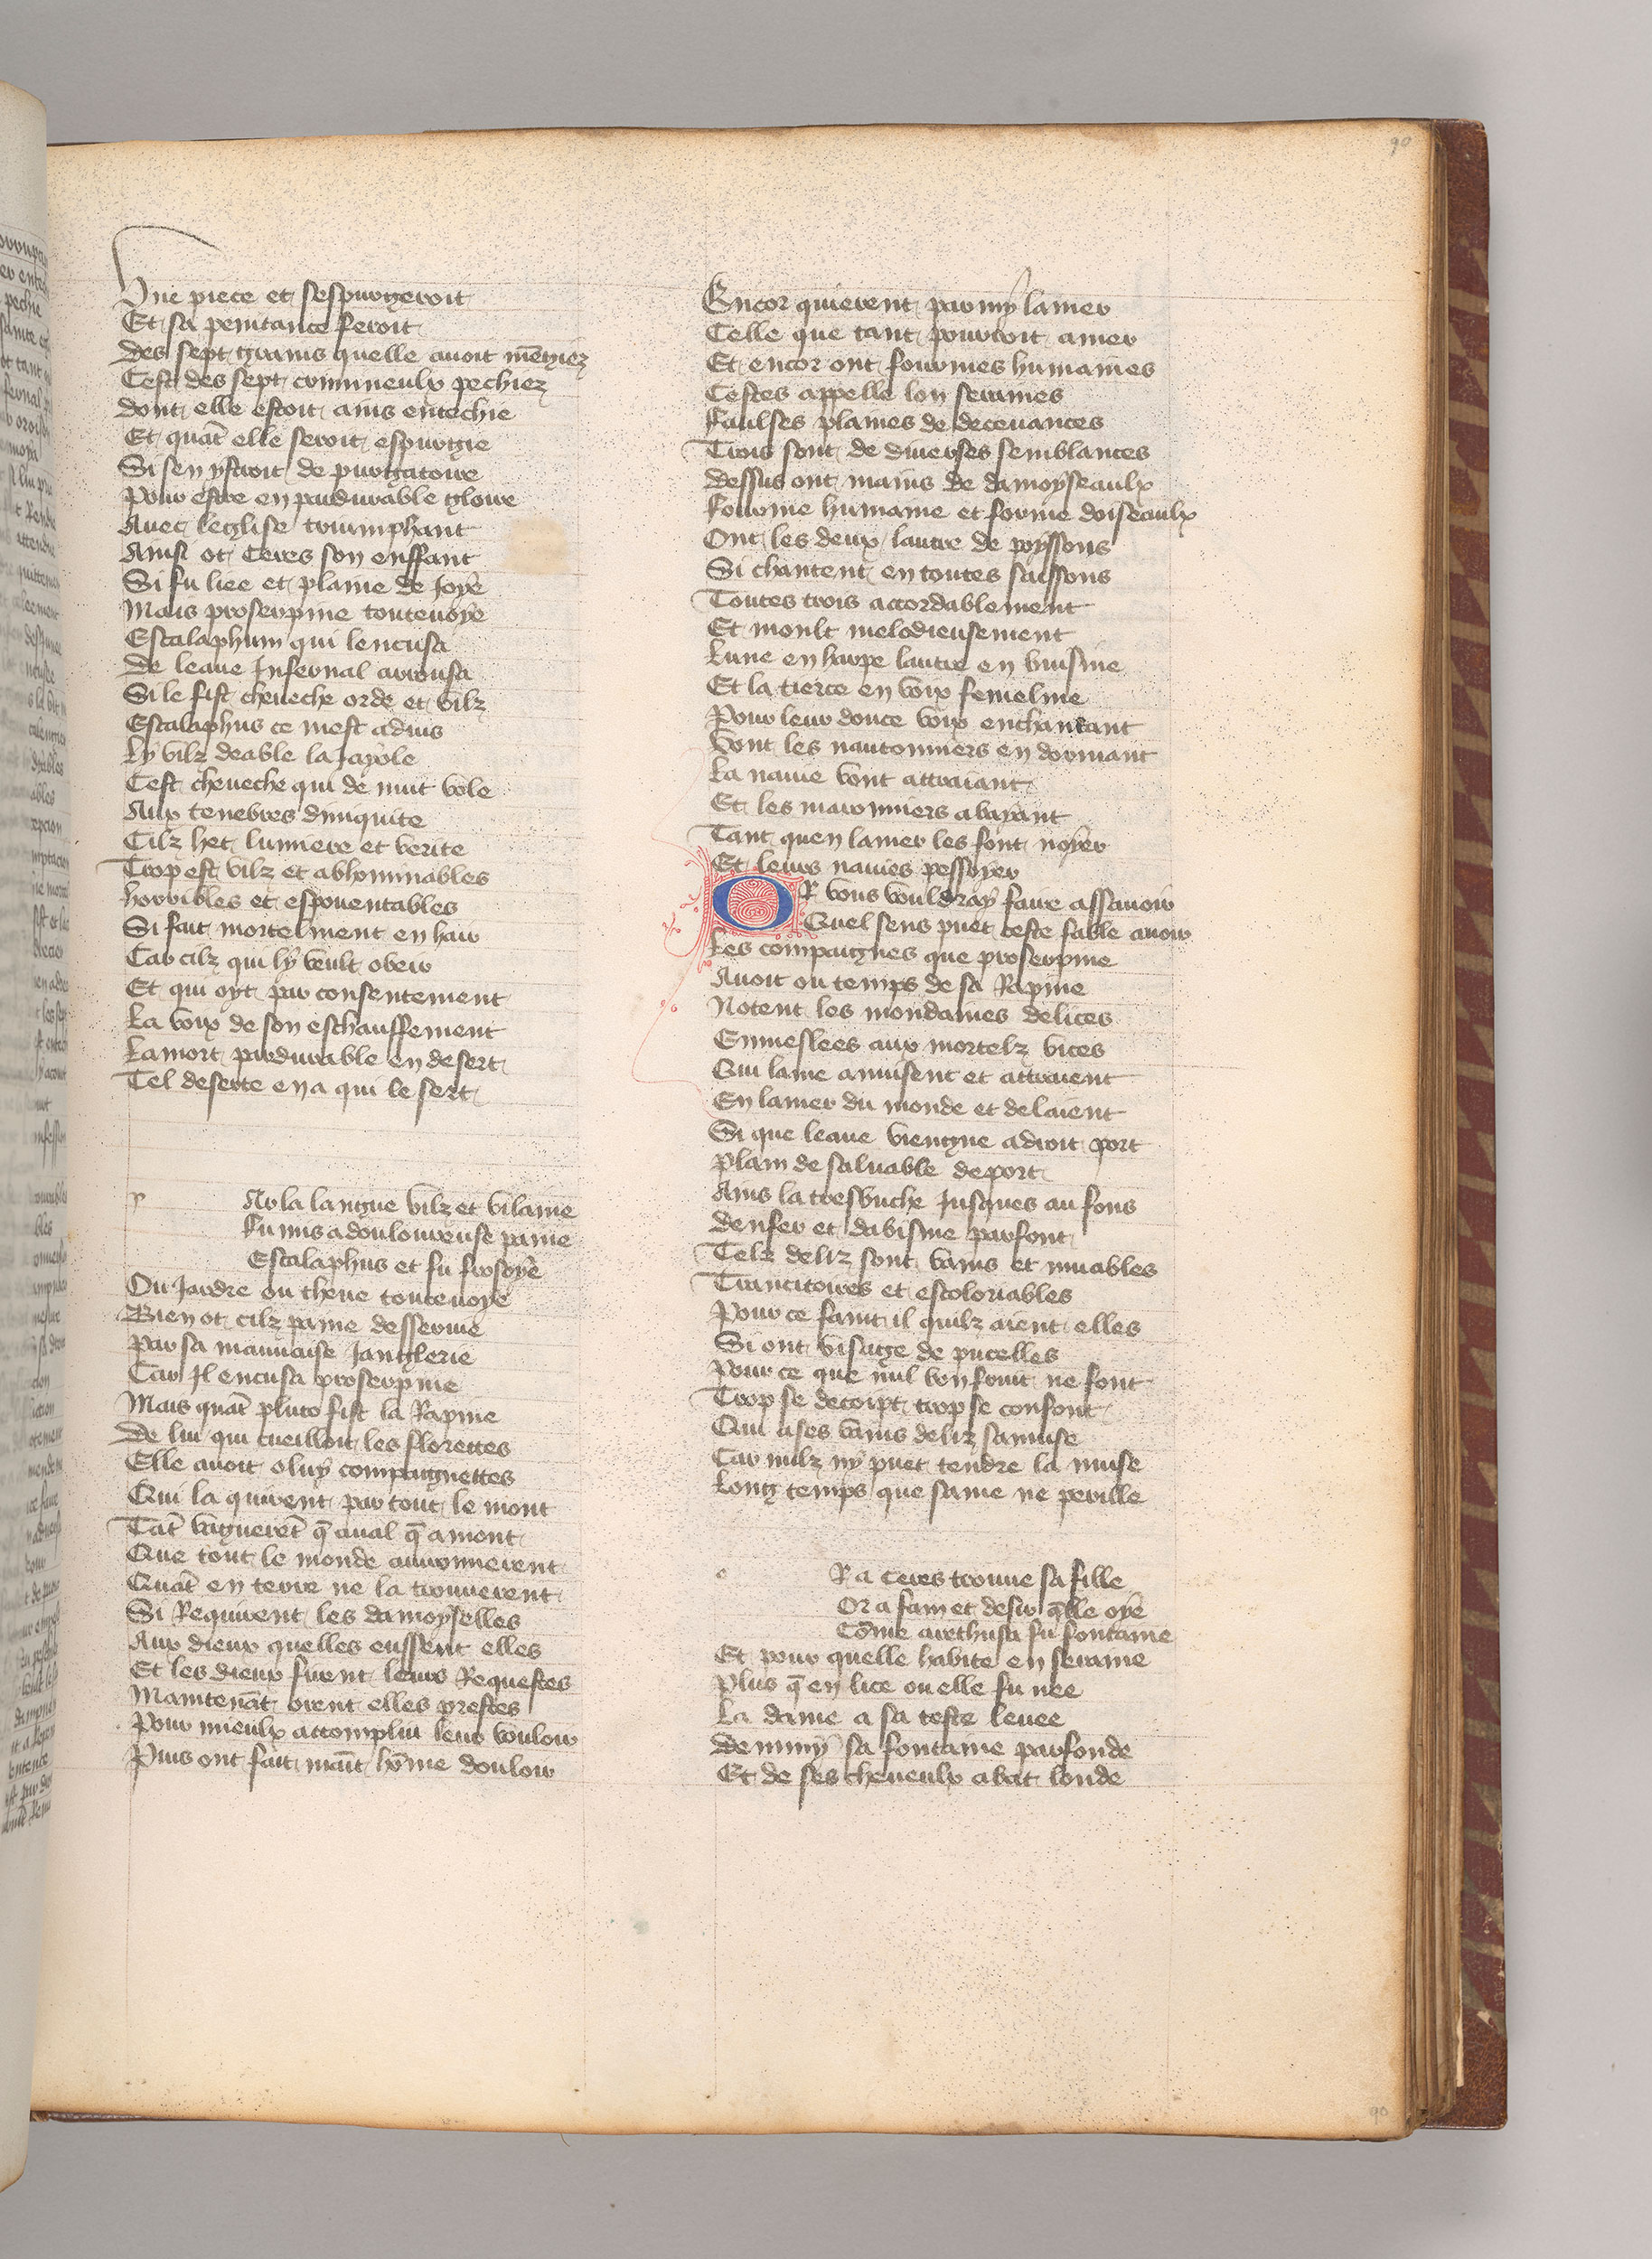 90
Une piece et sespurgeroit
Et sa penitance feroit
des sept grains quelle auoit mēgiez
Cest des sept crimineulx pechiez
dont elle estoit ains entechie
Et quāt elle seroit espurgie
Si sen ystroit de purgatoire
Pour estre en pardurable gloire
Auec leglise triumphant
Ainsi ot Ceres son enffant
Si fu liee et plaine de Joye
Mais proserpine toutenoye
Escalaphum qui lencusa
De leaue Infernal arrousa
Si le fist cheueche orde et vilz
Escalaphus ce mest aduis
Ly vilz deable la Jayole
Cest cheueche qui de nuit vole
Aux tenebres diniquite
Cilz het lumiere et verite
Trop est vilz et abhominables
horribles et espouentables
Si fait mortelment en hair
Car cilz qui ly veult obeir
Et qui oyt par consentement
La voix de son eschauffement
La mort pardurable en desert
Tel deserte en a qui le sert
p
Ar la langue vilz et vilaine
Fu mis a douloureuse paine
Escalaphus et fu frosoye
Ou Jardre ou theue toutenoye
Bien ot cilz paine desseruie
Par sa mauuaise Janglerie
Car Il encusa proserpine
Mais quāt pluto fist la Rapine
De lui qui cueilloit les florettes
Elle auoit o luy compaignettes
Qui la quirent par tout le mont
Tāt vaguerēt q̄ aual q̄ amont
Que tout le monde auironnerent
Quāt en terre ne la trouuerent
Si Requirent les damoyselles
Aux dieux quelles eussent elles
Et les dieux furent leurs Requestes
Maintenāt orent elles prestes
Pour mieulx accomplir leur vouloir
Puis ont fait maīt hōme douloir
Encor quierent parmy lamer
Celle que tant pourroit amer
Et encor ont fourmes humaines
Cestes appelle lon seraines
Faulses plaines de deceuances
Trois sont de diuerses semblances
dessus ont mains de damoyseaulx
Fourme humaine et forme doiseaulx
Ont les deux lautre de poyssons
Si chantent en toutes saissons
Toutes trois accordablement
Et moult melodieusement
Lune en harpe lautre en buisine
Et la tierce en voix femeline
Pour leur douce voix enchantant
Vont les nautonniers en dormant
La nauie vont attraiant
Et les maronniers abayant
Tant quen lamer les font noyer
Et leurs nauies pessoyer
OR vous vouldray faire assauoir
Quel sens puet ceste fable auoir
Les compaignes que proserpine
Auoit ou temps de sa Rapine
Notent les mondaines delices
Enmeslees aux mortelz vices
Qui lame amusent et attraient
En lamer du monde et delaient
Si que leaue viengne adroit port
plain de saluable deport
Ains la tresbuche Jusques au fons
denfer et dabisme parfont
Telz deliz sont vains et muables
Trancitoires et escoloriables
Pour ce faint il quilz aient elles
Si ont visage de pucelles
Pour ce que nul bon fruit ne font
Trop se decoipt trop se confont
Qui ases vains deliz samuse
Car nulz ny puet tendre la muse
Long temps que same ne perille
o
R a Ceres trouue sa fille
Or a fain et desir q̄lle oye
Cōme arethusa fu fontaine
Et pour quelle habite en seraine
Plus q̄ en lice ou elle fu nee
La dame a sa teste leuee
Demmy sa fontaine parfonde
Et de ses cheueulx abat londe
90